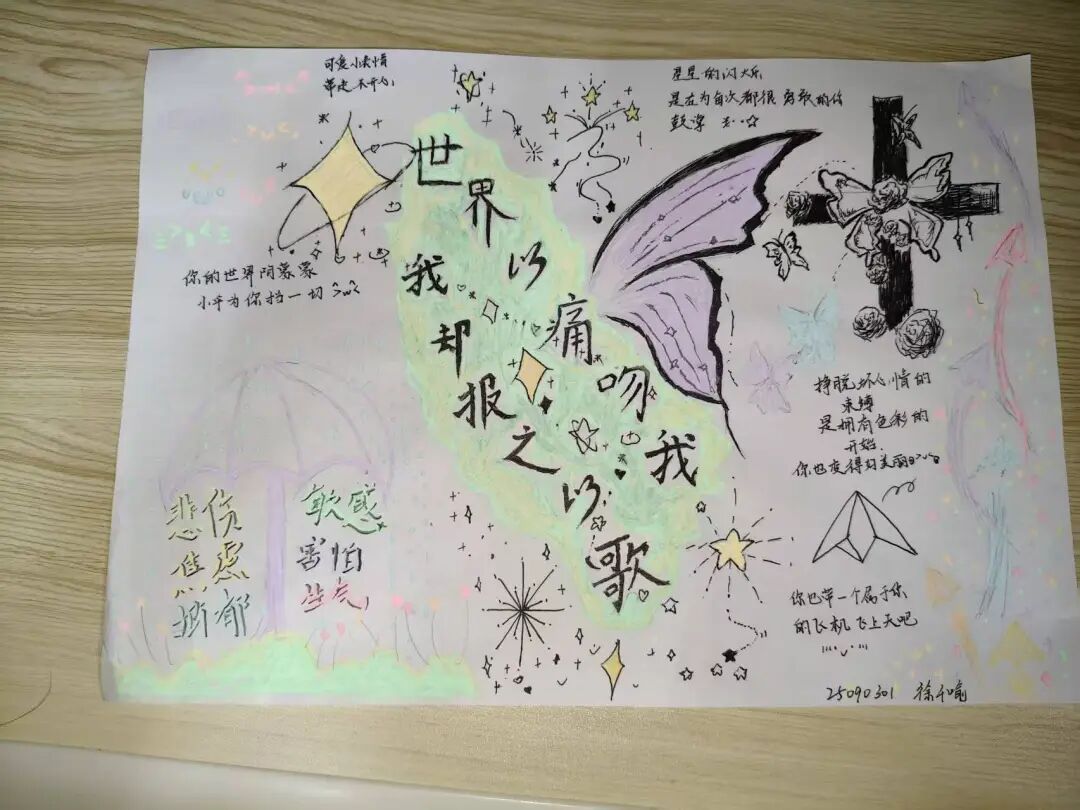 可爱小表情
带走不开心
星星的闪烁
是在为每次都很勇敢的你
鼓掌
世界以痛吻我
我却报之以歌
你的世界阴蒙蒙
小伞为你挡一切
挣脱坏心情的
束缚
是拥有色彩的
开始.
你也变得好美丽
悲伤
焦虑
抑郁
敏感
害怕
生气
你也带一个属于你
的飞机飞上天吧
25090301 徐